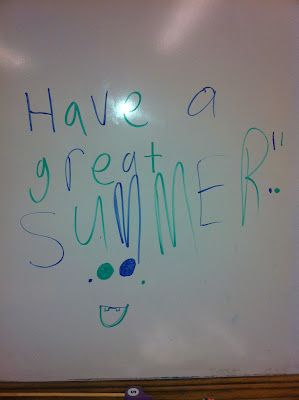 Have a
great
SUMMER!!